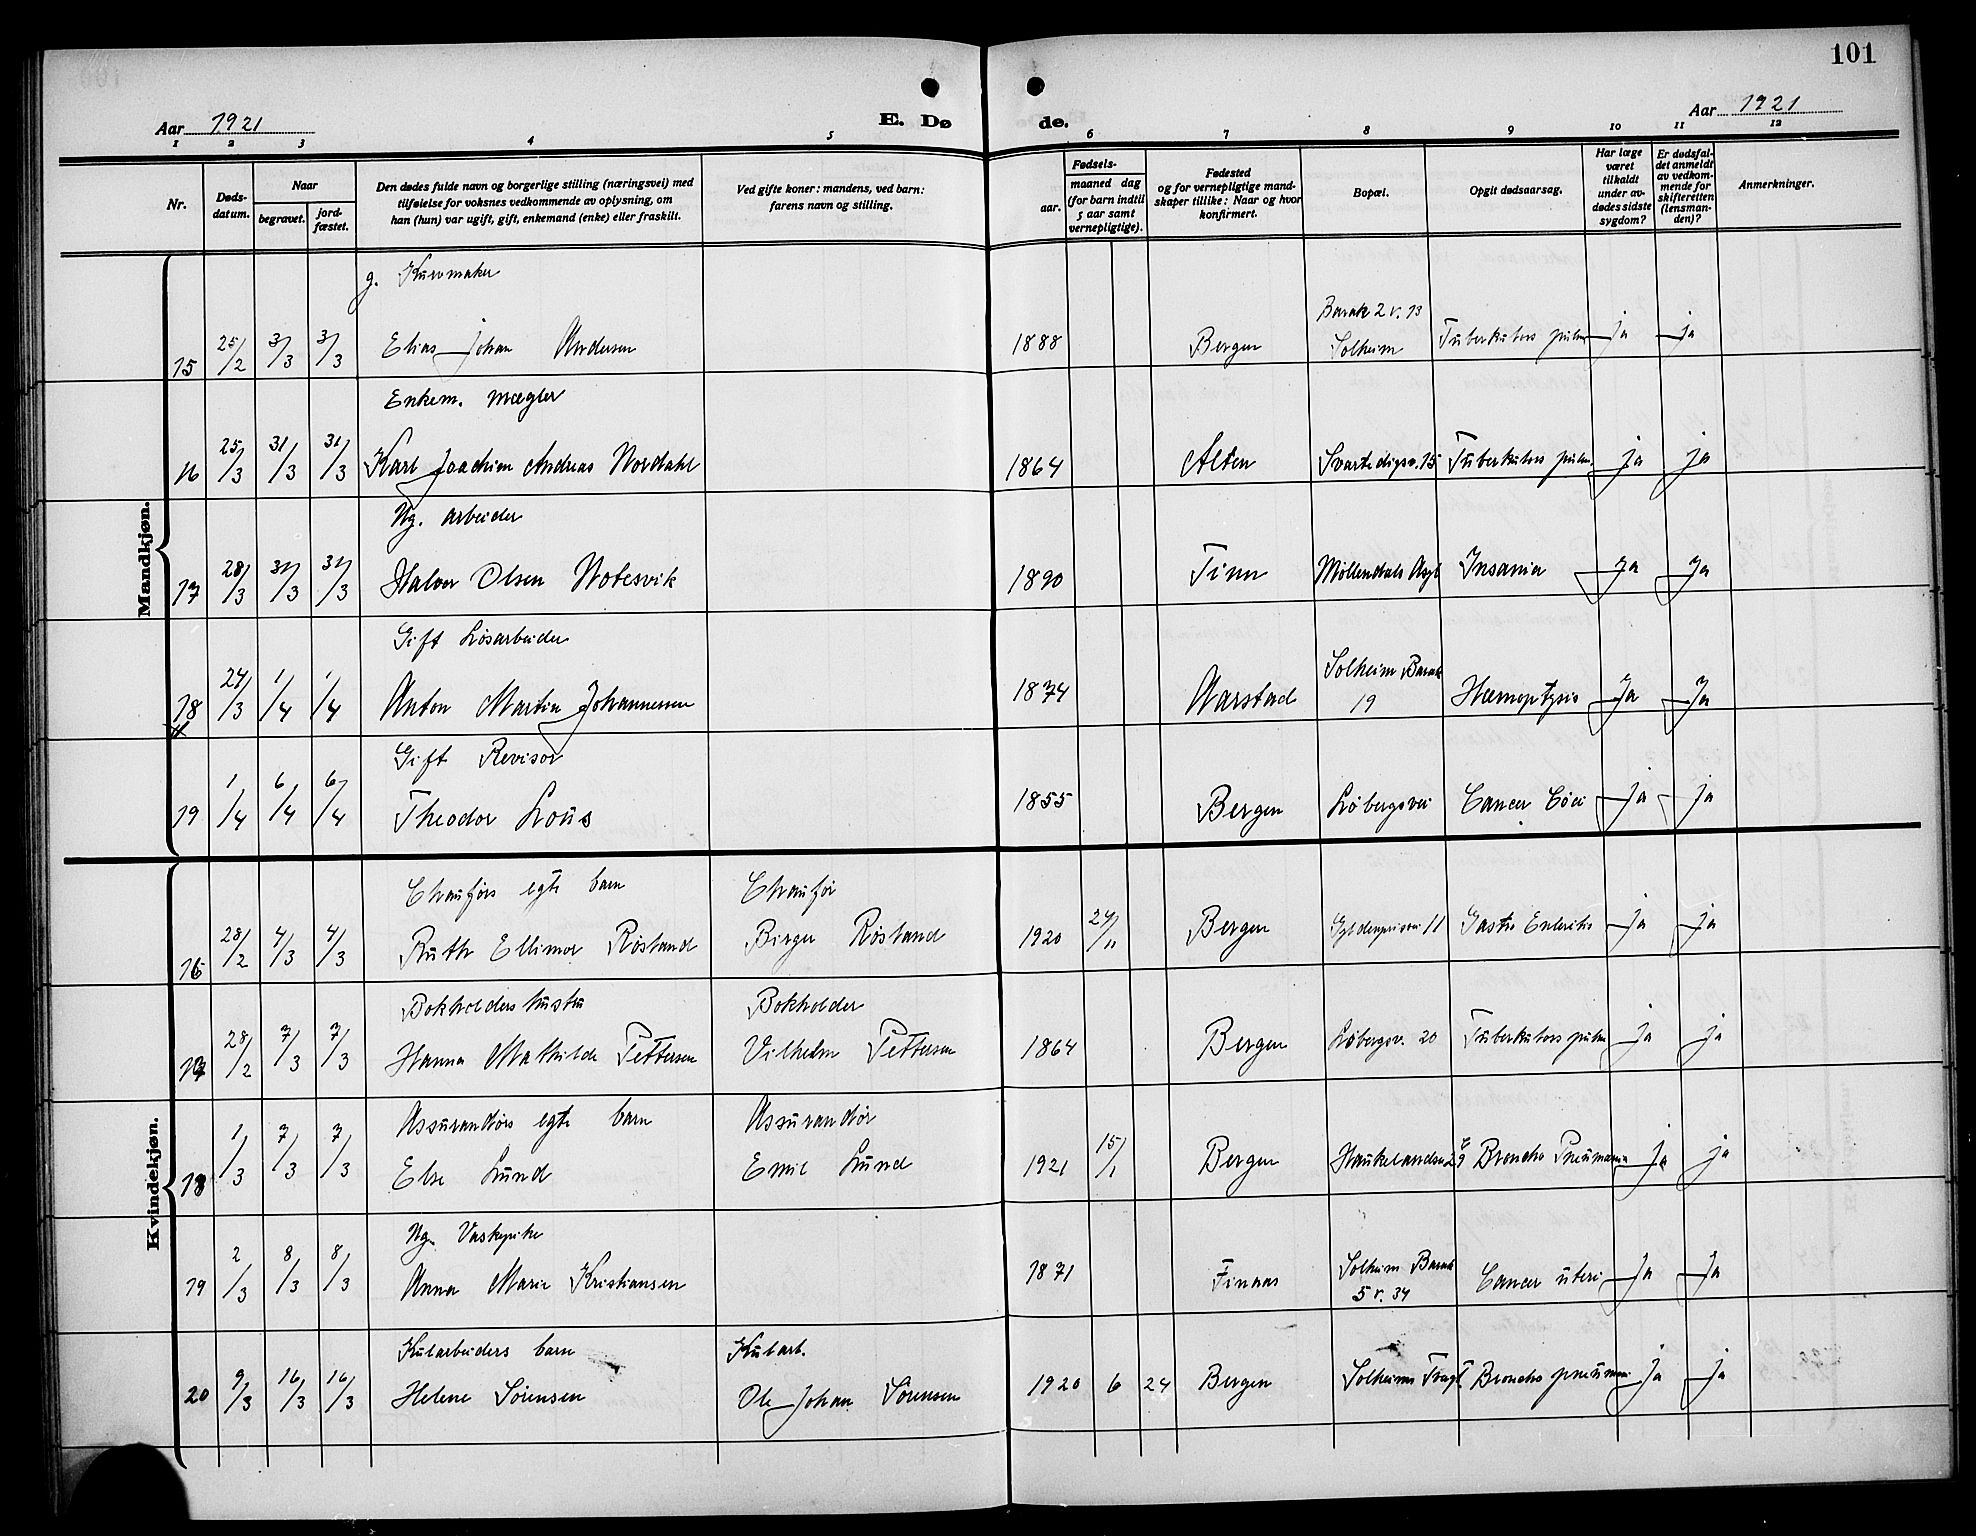 101
Aar 1921
E. Dø
de.
Aar 1921
1 2 3 4 5 6 7 8 9 10 11 12
Nr.
Døds-
datum.
Naar
begravet.
jord-
fæstet.
Den dødes fulde navn og borgerlige stilling (næringsvei) med
tilføielse for voksnes vedkommende av oplysning, om
han (hun) var ugift, gift, enkemand (enke) eller fraskilt.
Ved gifte koner: mandens, ved barn:
farens navn og stilling.
Fødsels-
aar.
maaned dag
(for barn indtil
5 aar samt
vernepligtige).
Fødested
og for vernepligtige mand-
skaper tillike: Naar og hvor
konfirmert.
Bopæl.
Opgit dødsaarsag.
Har læge
været
tilkaldt
under av-
dødes sidste
sygdom?
Er dødsfal-
det anmeldt
av vedkom-
mende for
skifteretten
(lensman-
den)?
Anmerkninger.
Mandkjøn.
g. Kurvmaker
Barak 2 v. 13
15 25/2 3/3 3/3 Elias Johan Andersen 1888 Bergen Solheim Tuberkulos pulm ja ja
Enkem. Mægler
16 25/3 31/3 31/3 Karl Joachim Andreas Nordahl 1864 Alten Svartedigsv. 15 Tuberkulos pulm. ja ja
Ug. arbeider
17 28/3 31/3 31/3 Halvor Olsen Notesvik 1890 Finn Møllendals Asyl Insania Ja Ja
Gift Løsarbeider
Solheim Barak
18 24/3 1/4 1/4 Anton Martin Johannessen 1874 Aarstad 19 Hæmoptysis Ja Ja
Gift Revisor
19 1/4 6/4 6/4 Theodor Lous 1855 Bergen Løbergsvei Cancer ja ja
Kvindekjøn.
Chauførs egte barn Chaufør
16 28/2 4/3 4/3 Ruth Ellimor Røstand Birger Røstand 1920 24/11 Bergen 11 Gastro Enteritis ja ja
Bokholders hustru Bokholder
17 28/2 7/3 7/3 Hanna Mathilde Pettersen Vilhelm Pettersen 1864 Bergen Løbergsv. 20 Tuberkulos pulm ja ja
Assurandørs egte barn Assurandør
18 1/3 7/3 7/3 Else Lund Emil Lund 1921 15/1 Bergen Haukelandsv 29 Broncho Pneumonia ja ja
Ug. Vaskepike
Solheim Barak
19 2/3 8/3 8/3 Anna Marie Kristiansen 1871 Finnas 5 v. 34 Cancer uteri Ja Ja
Kularbeiders barn Kularb.
20 9/3 16/3 16/3 Helene Sørensen Ole Johan Sørensen 1920 6 24 Bergen Solheims Broncho pneumoni Ja ja